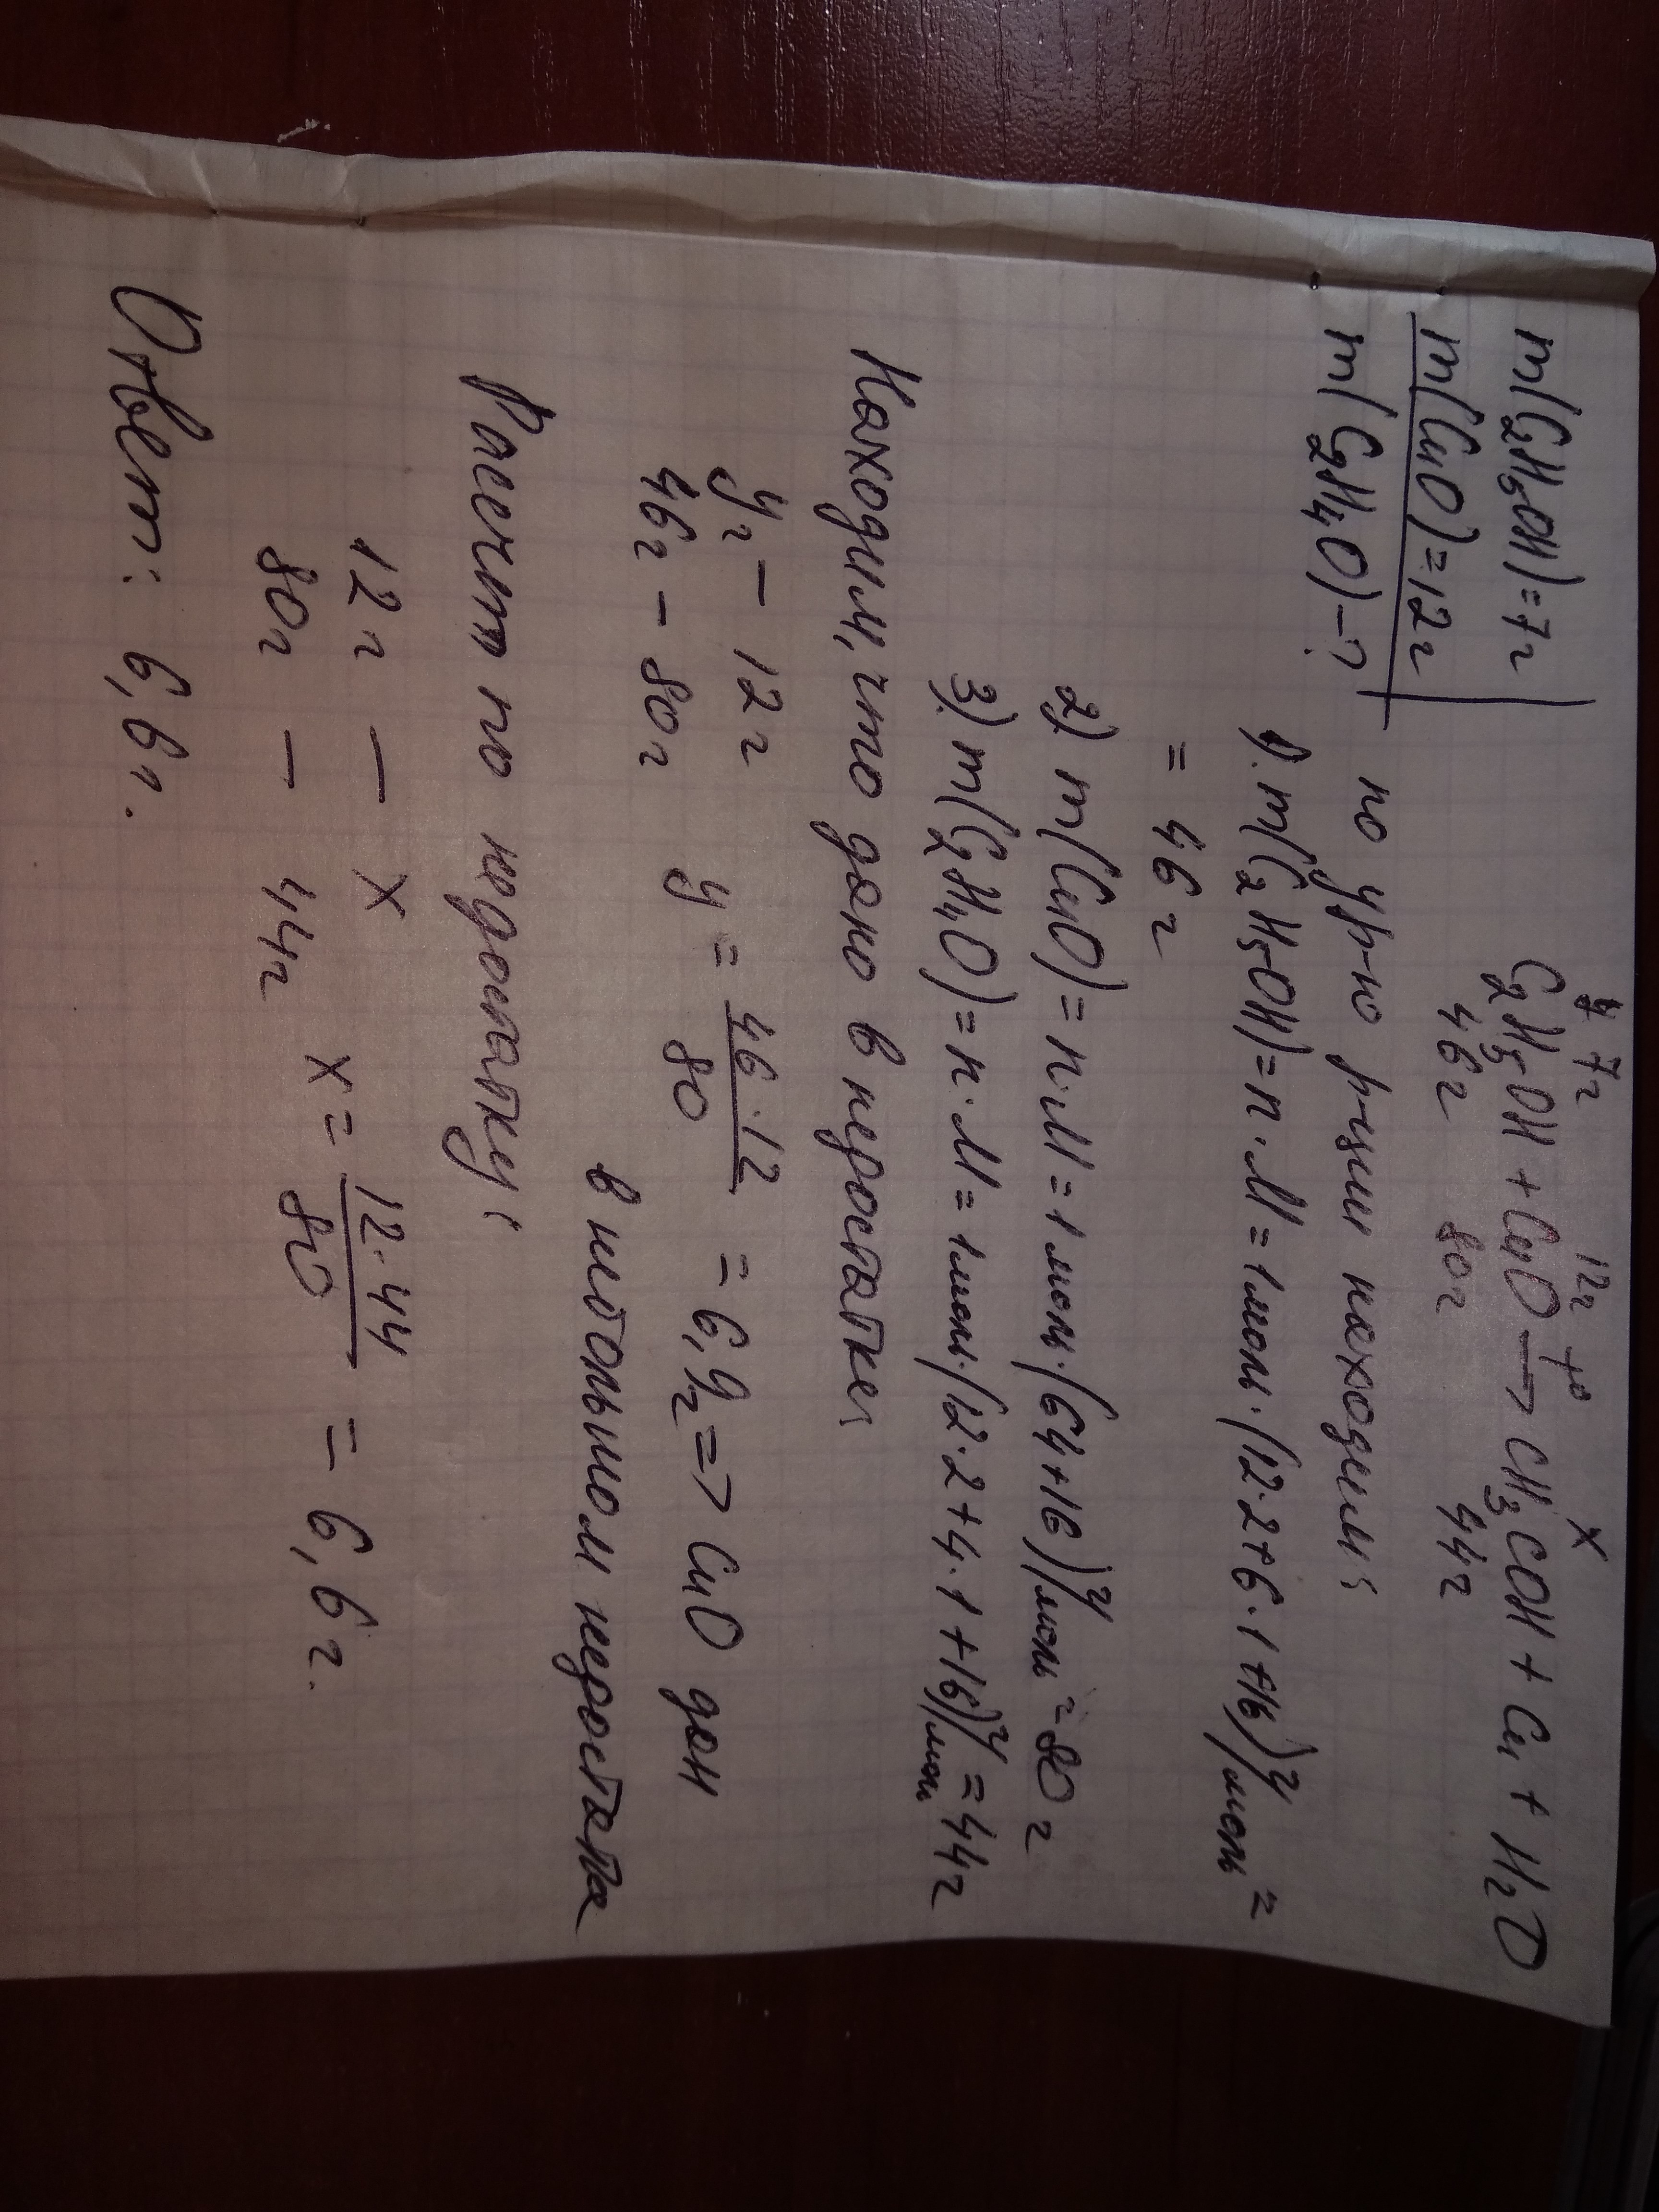 m(C2H5OH)=7г
m(CuO)=12г
m(C2H4O)-?
7г 12г x
C2H5OH + CuO t° → CH3COH + Cu + H2O
46г 80г 44г
по ур-ю р-ции находим:
1). m(C2H5OH)=n·M=1моль·(12·2+6·1+16)г/моль=
= 46г
2) m(CuO)=n·M=1моль·(64+16)г/моль=80г
3.) m(C2H4O)=n·M=1моль·(12·2+4·1+16)г/моль=44г
Находим, что дано в недостатке:
yг – 12г
46г – 80г y = 46·12/80 = 6,9г => CuO дан
в небольшом недостатке
Расчет по недостатку:
12г – x
80г – 44г x = 12·44/80 = 6,6г.
Ответ: 6,6г.